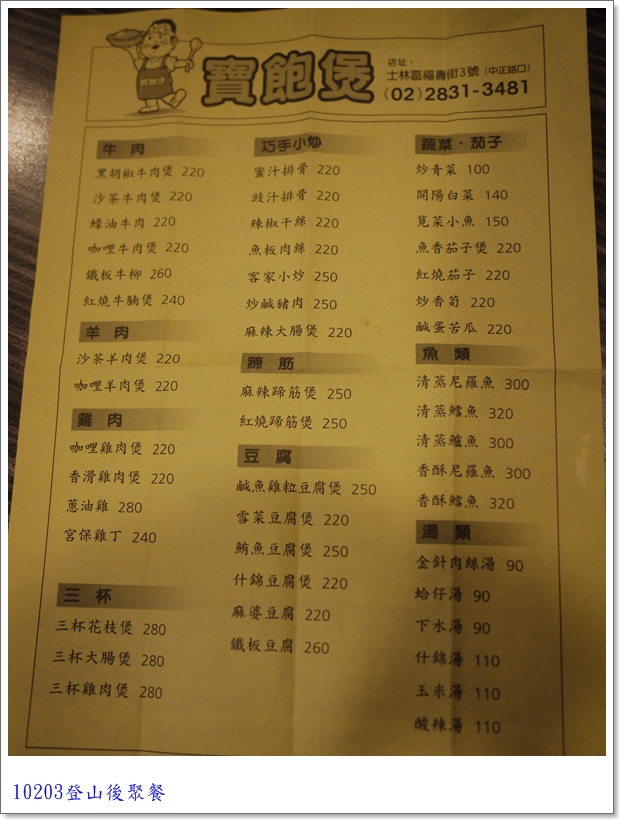 寶飽煲
店址：
士林區福壽街3號（中正路口）
(02)2831-3481
牛肉
黑胡椒牛肉煲 220
沙茶牛肉煲 220
蠔油牛肉 220
咖哩牛肉煲 220
鐵板牛柳 260
紅燒牛腩煲 240
羊肉
沙茶羊肉煲 220
咖哩羊肉煲 220
雞肉
咖哩雞肉煲 220
香滑雞肉煲 220
蔥油雞 280
宮保雞丁 240
三杯
三杯花枝煲 280
三杯大腸煲 280
三杯雞肉煲 280
巧手小炒
蜜汁排骨 220
豉汁排骨 220
辣椒干絲 220
魚板肉絲 220
客家小炒 250
炒鹹豬肉 250
麻辣大腸煲 220
蹄筋
麻辣蹄筋煲 250
紅燒蹄筋煲 250
豆腐
鹹魚雞粒豆腐煲 250
雪菜豆腐煲 220
鮪魚豆腐煲 250
什錦豆腐煲 220
麻婆豆腐 220
鐵板豆腐 260
蔬菜、茄子
炒青菜 100
開陽白菜 140
莧菜小魚 150
魚香茄子煲 220
紅燒茄子 220
炒香筍 220
鹹蛋苦瓜 220
魚類
清蒸尼羅魚 300
清蒸鱈魚 320
清蒸鱸魚 300
香酥尼羅魚 300
香酥鱈魚 320
湯類
金針肉絲湯 90
蛤仔湯 90
下水湯 90
什錦湯 110
玉米湯 110
酸辣湯 110
10203登山後聚餐